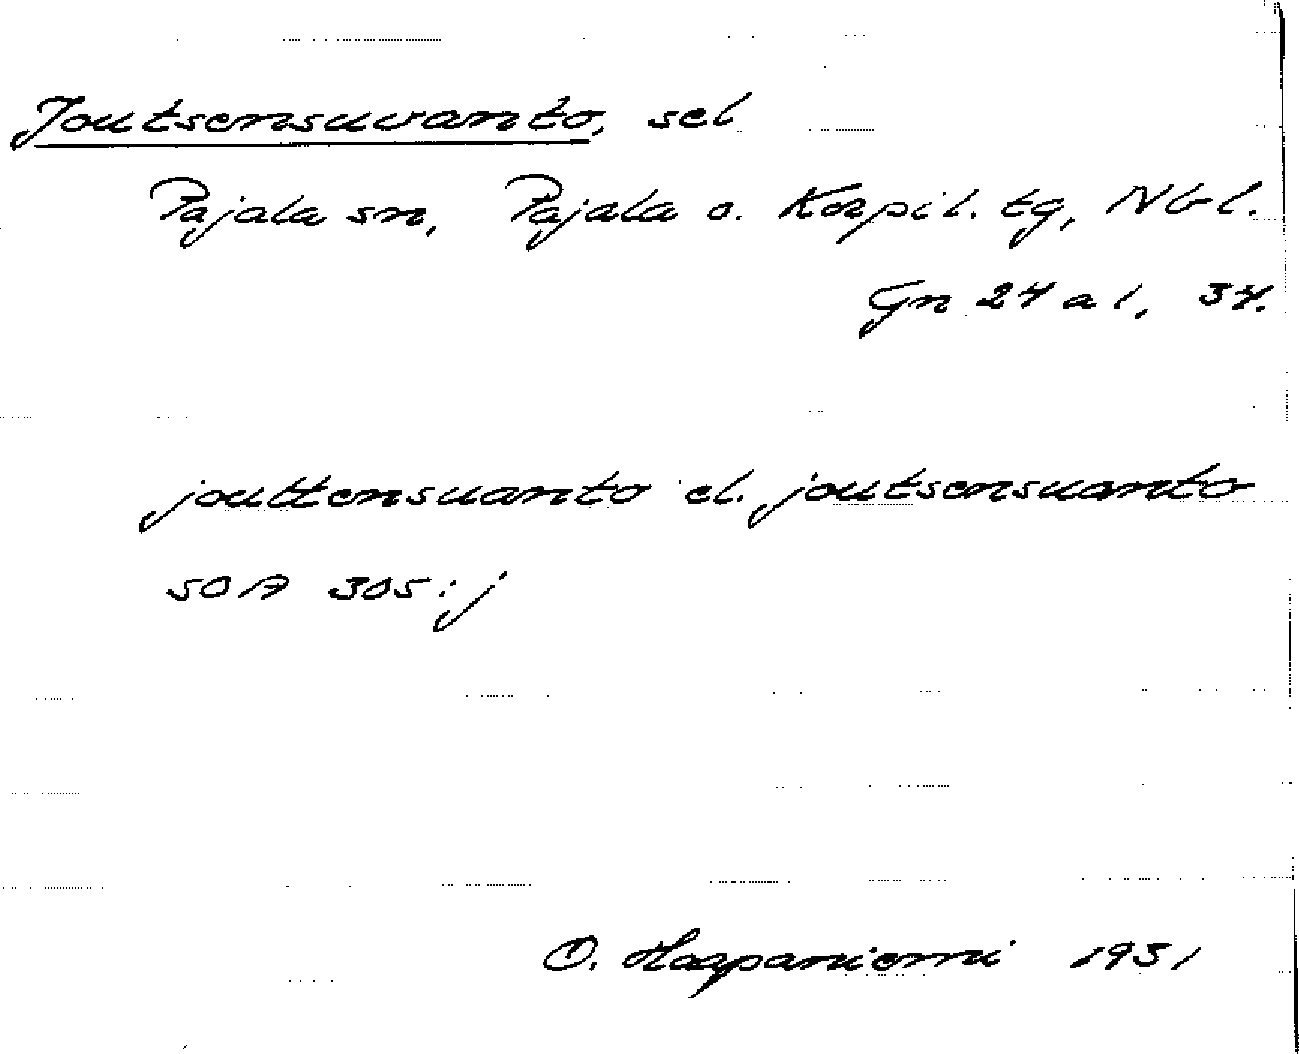 Joutsensuvanto, sel
Pajala sn, Pajala o. Korpil. tg, Nbl.
Gn 24 a 1, 34.
jouttensuanto el. joutsensuanto
SOA 305:j
O. Haapaniemi 1931